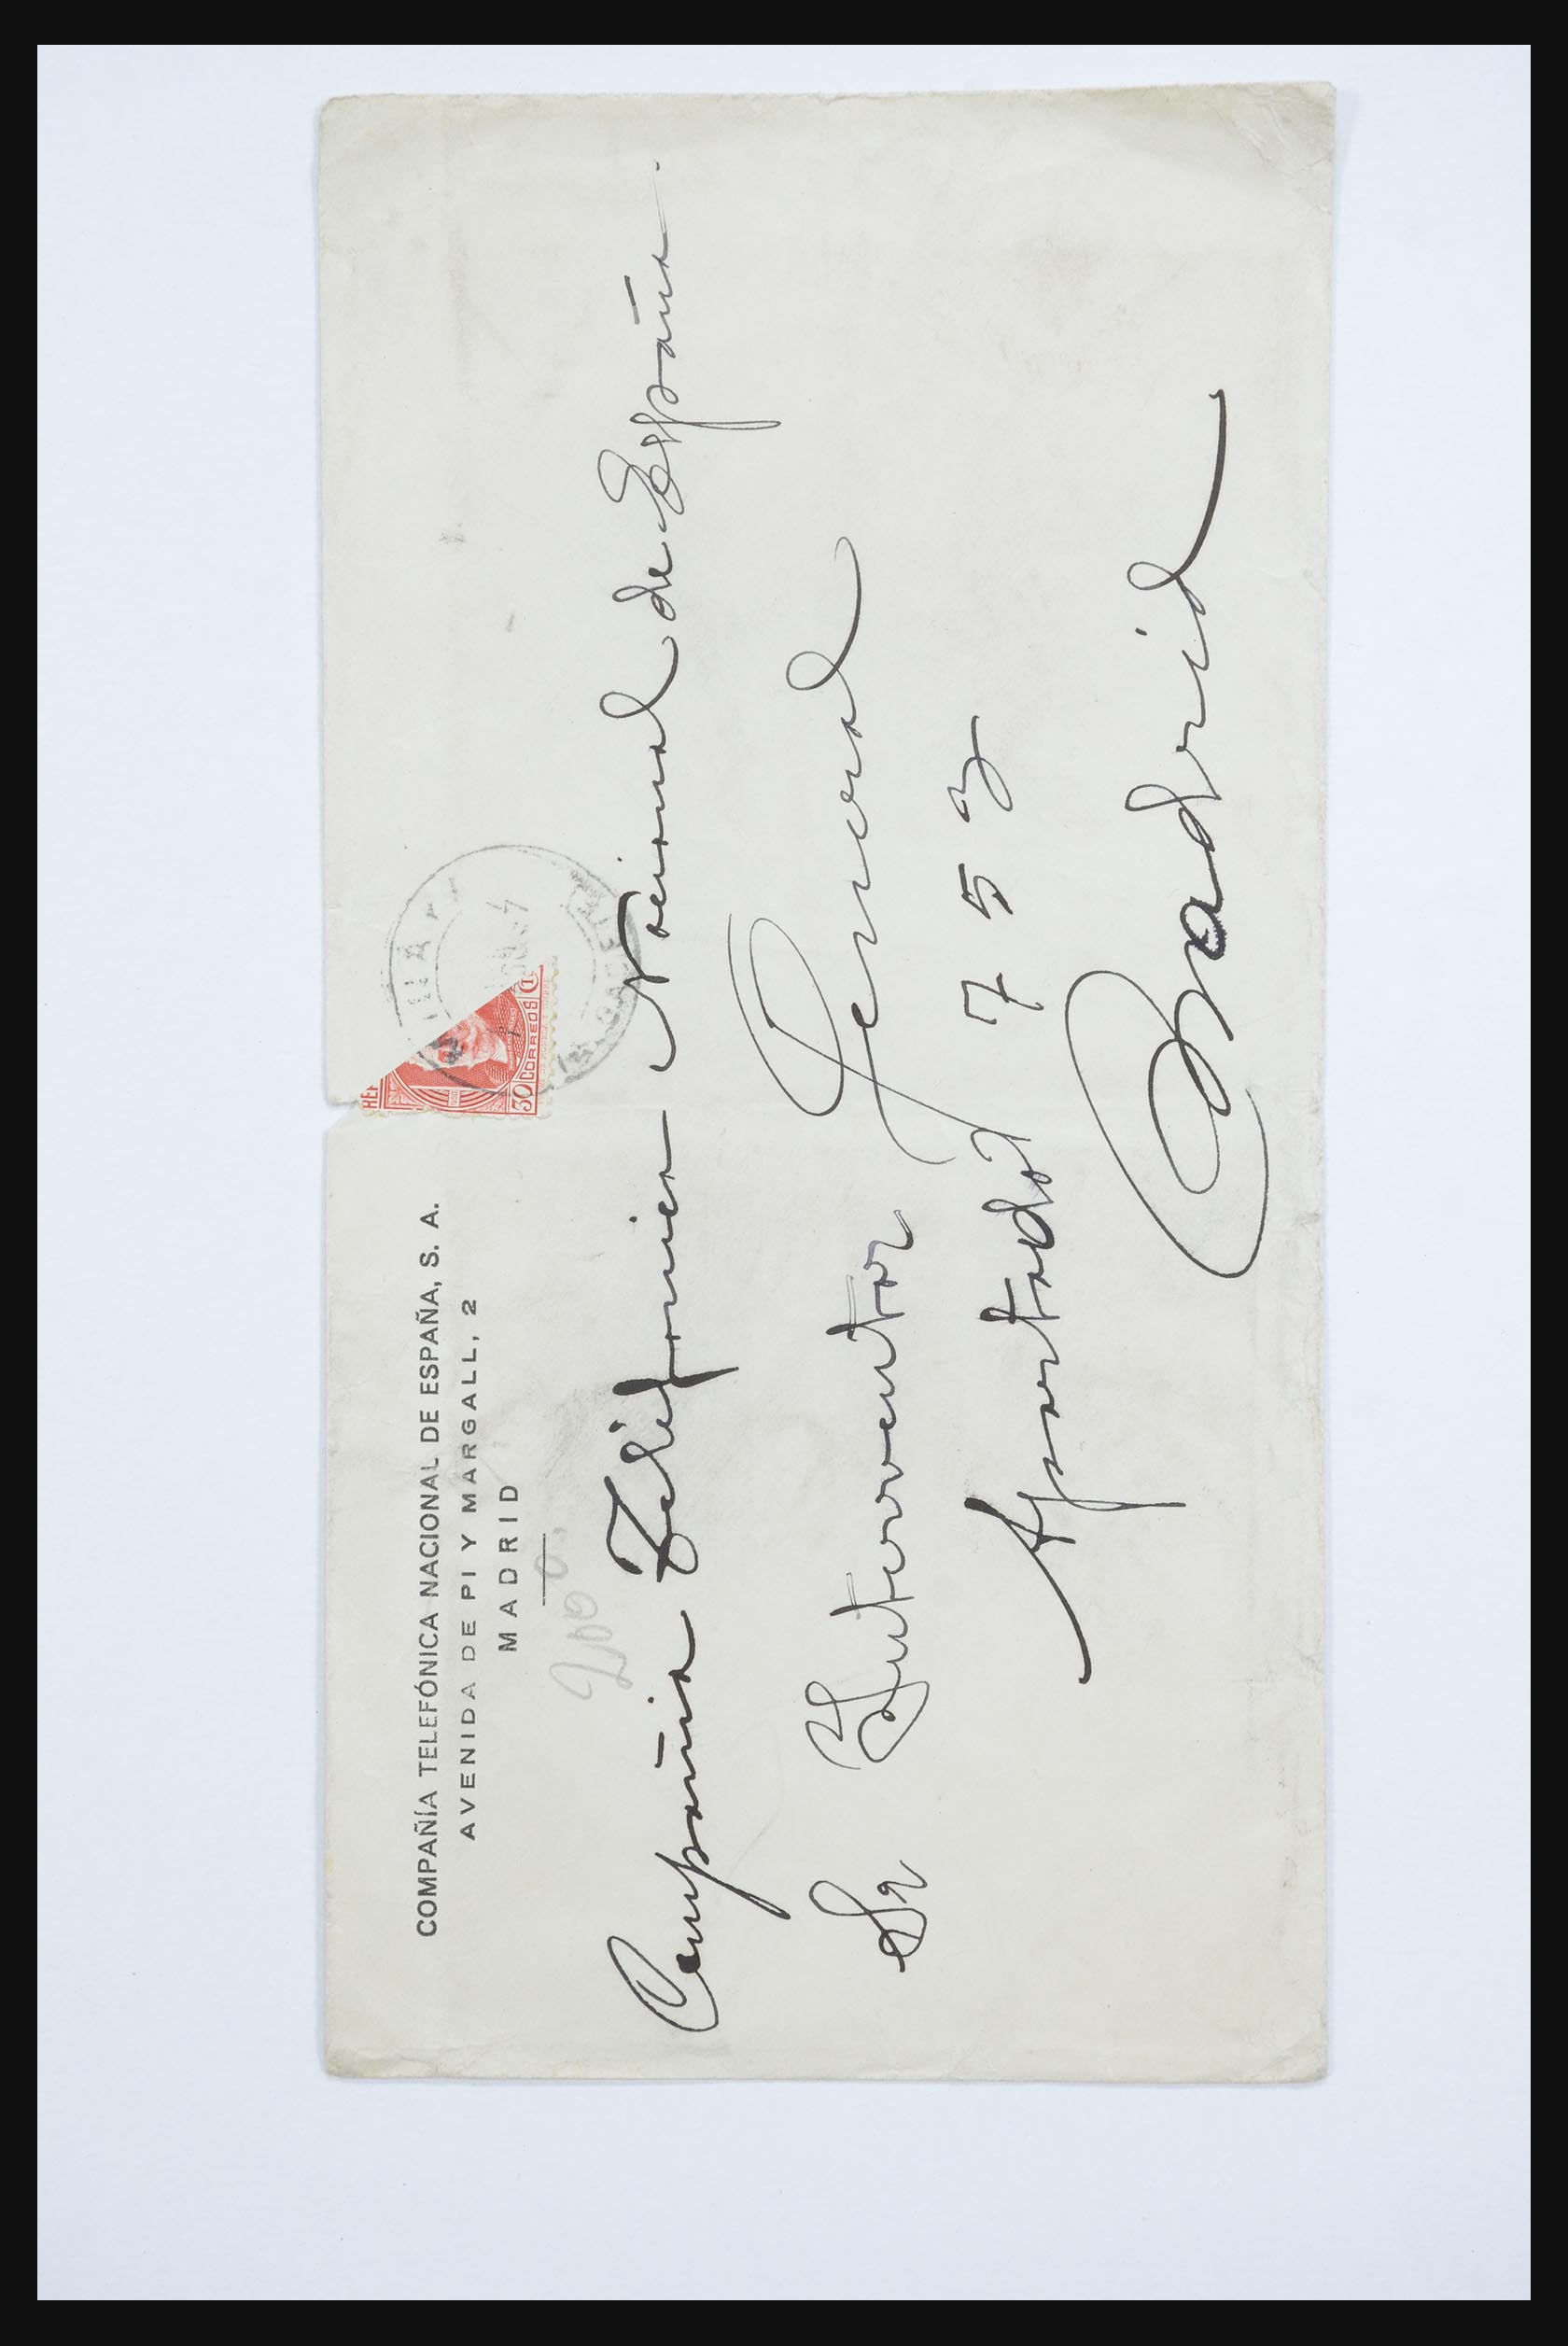 COMPAÑÍA TELEFÓNICA NACIONAL DE ESPAÑA, S. A.
AVENIDA DE PI Y MARGALL, 2
MADRID
30 CORREOS
Compañia Telefonica Nacional de España.
Sr Interventor General
Apartado 753
Madrid